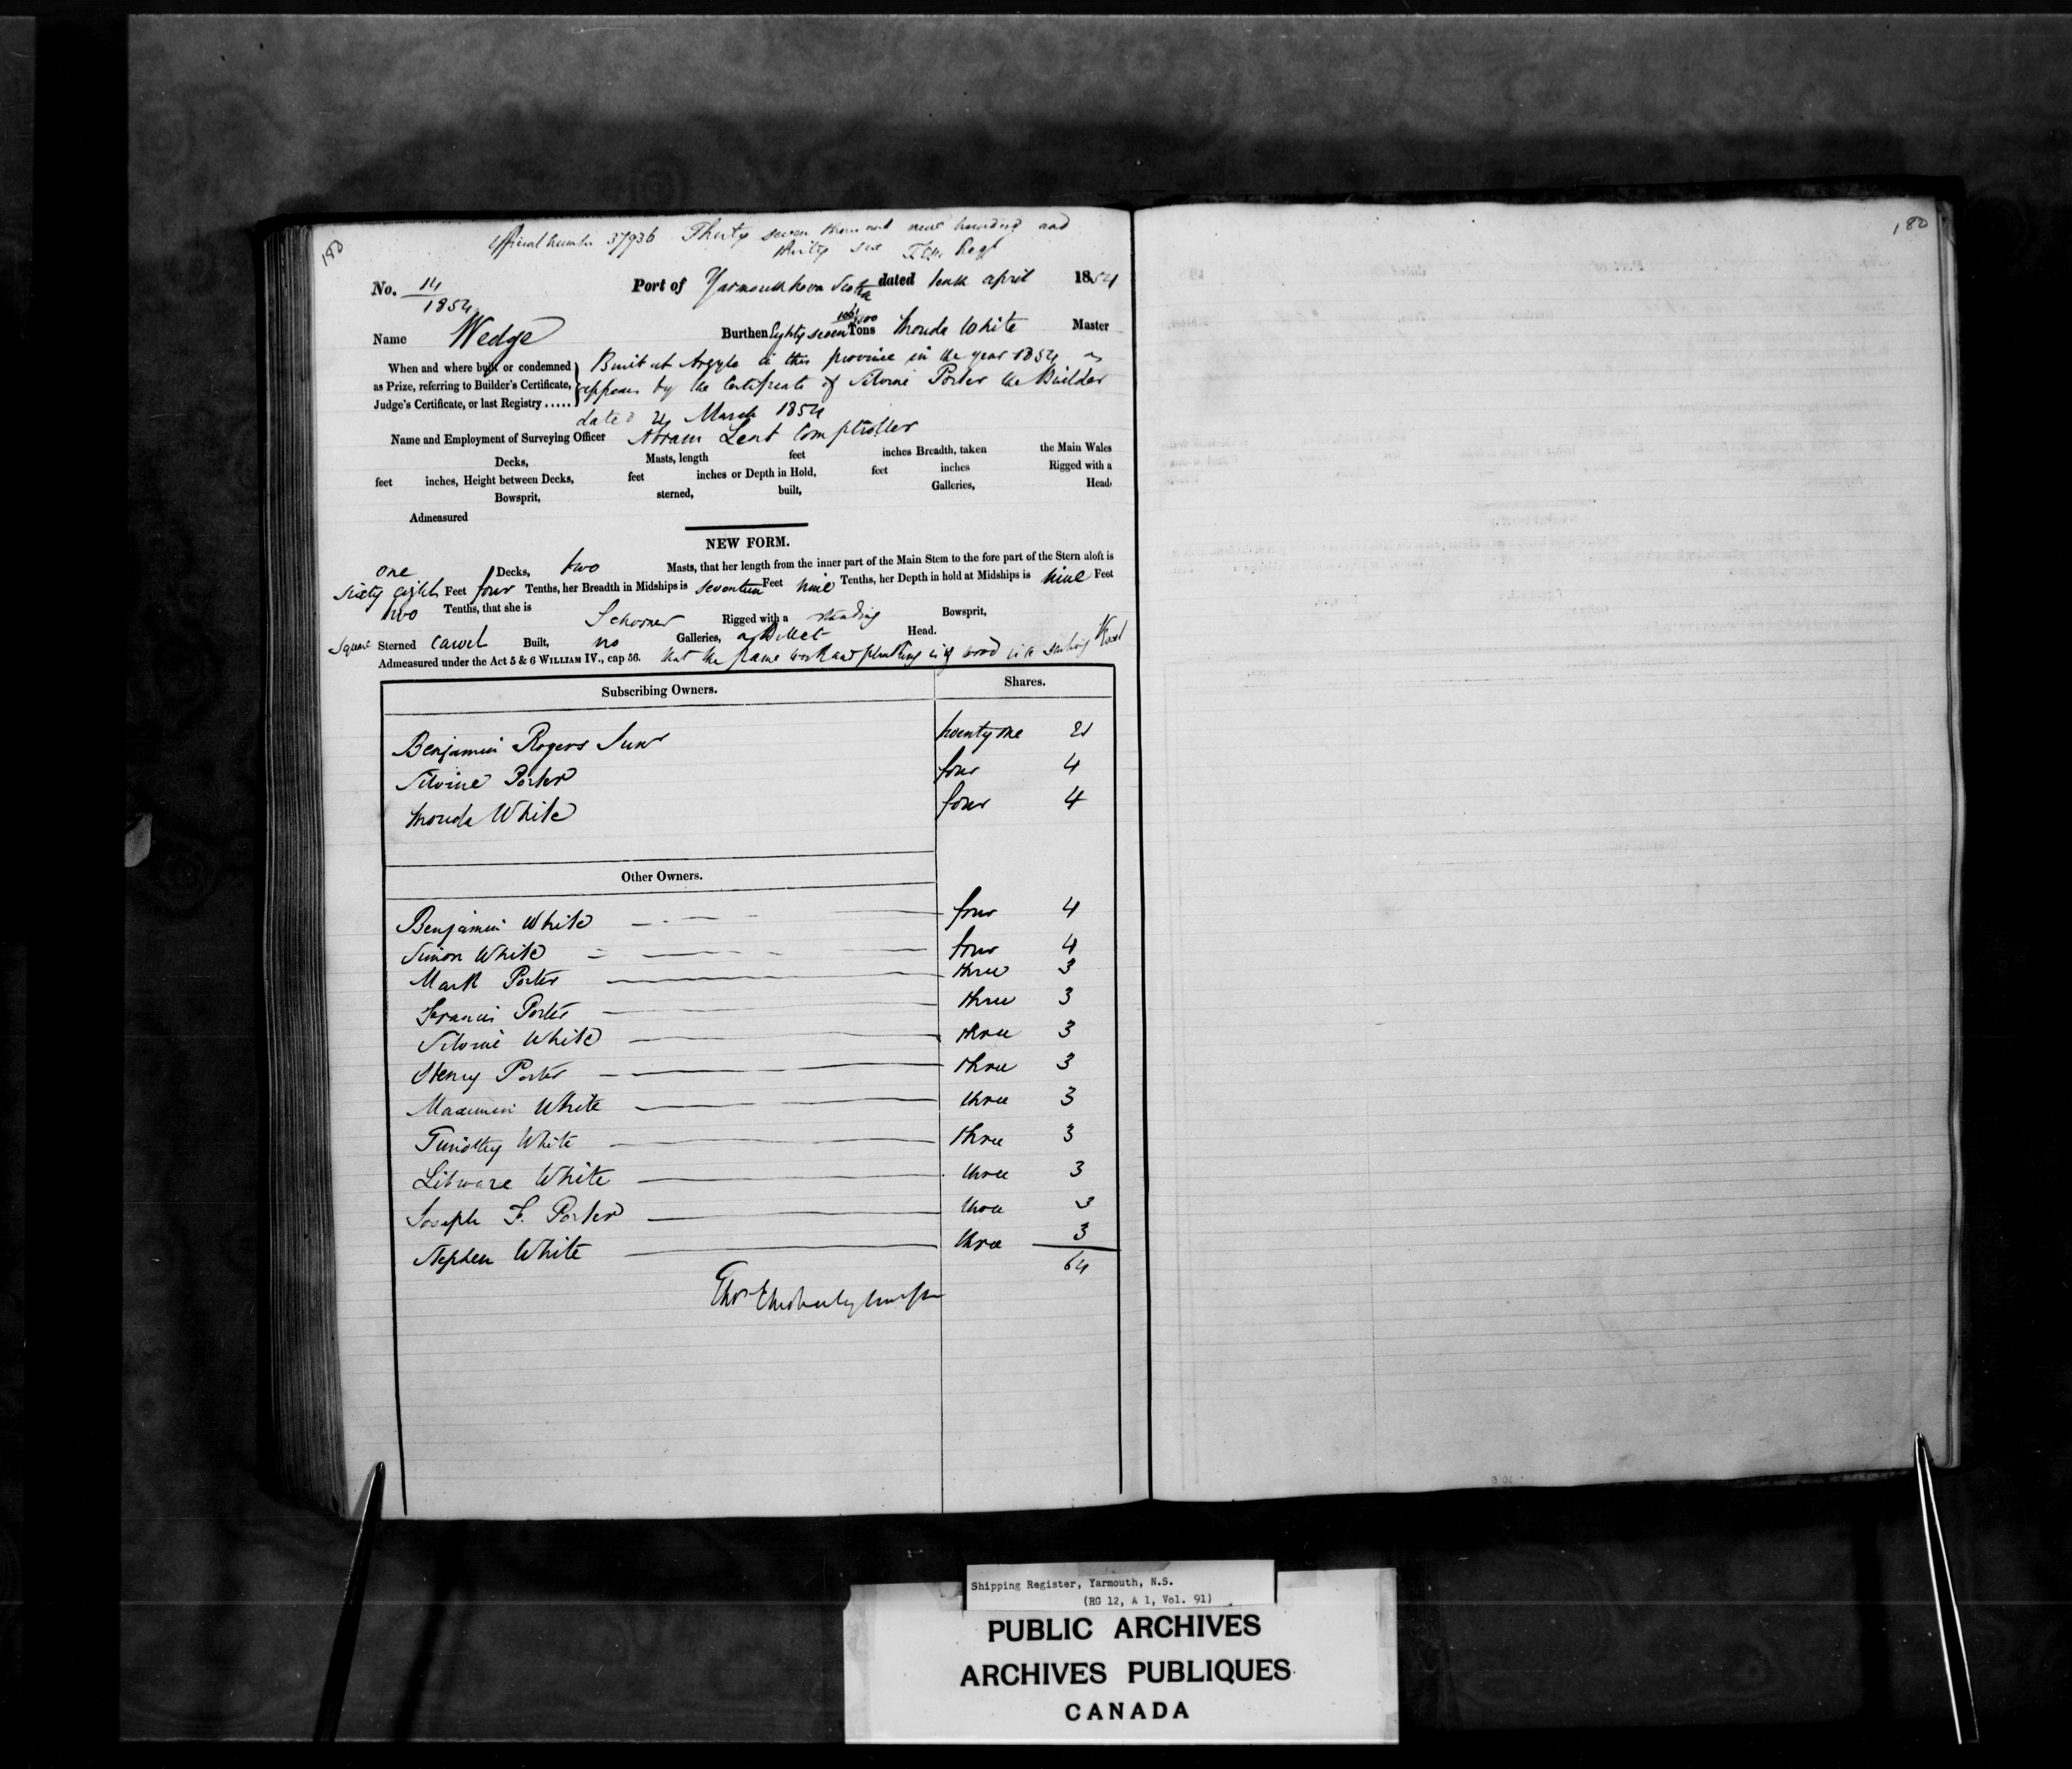 180
180
Official Number 37936 Thirty seven thousand nine hundred and
thirty six
No. 14 Port of Yarmouth Nova Scotia dated tenth april 1854
1854
Name Wedge Burthen Eighty seven Tons White Master
When and where built or condemned Built at Argyle in this province in the year 1854 as
as Prize, referring to Builder's Certificate, appears by the Certificate of Silvine Porter the Builder
Judge's Certificate, or last Registry..... dated March 1854
Name and Employment of Surveying Officer Abram Lent Comptroller
Decks, Masts, length feet inches Breadth, taken the Main Wales
feet inches, Height between Decks, feet inches or Depth in Hold, feet inches Rigged with a
Bowsprit, sterned, built, Galleries, Head,
Admeasured
NEW FORM.
one Decks, two Masts, that her length from the inner part of the Main Stem to the fore part of the Stern aloft is
sixty eight Feet four Tenths, her Breadth in Midships is seventeen Feet nine Tenths, her Depth in hold at Midships is nine Feet
two Tenths, that she is Schooner Rigged with a standing Bowsprit,
Square Sterned Carvel Built, no Galleries, a Billet Head.
Admeasured under the Act 5 & 6 WILLIAM IV., cap 56. that the frame work and planking is of wood is a sailing Vessel
Subscribing Owners. Shares.
Benjamin Rogers Senr twenty one 21
Silvine Porter four 4
White four 4
Other Owners.
Benjamin White four 4
Simon White four 4
Mark Porter three 3
Francis Porter three 3
Silvine White three 3
Henry Porter three 3
Maximin White three 3
Timothy White three 3
White three 3
Joseph F. Porter three 3
Stephen White three 3
64
Shipping Register, Yarmouth, N.S.
(RG 12, A 1, Vol. 91)
PUBLIC ARCHIVES
ARCHIVES PUBLIQUES
CANADA